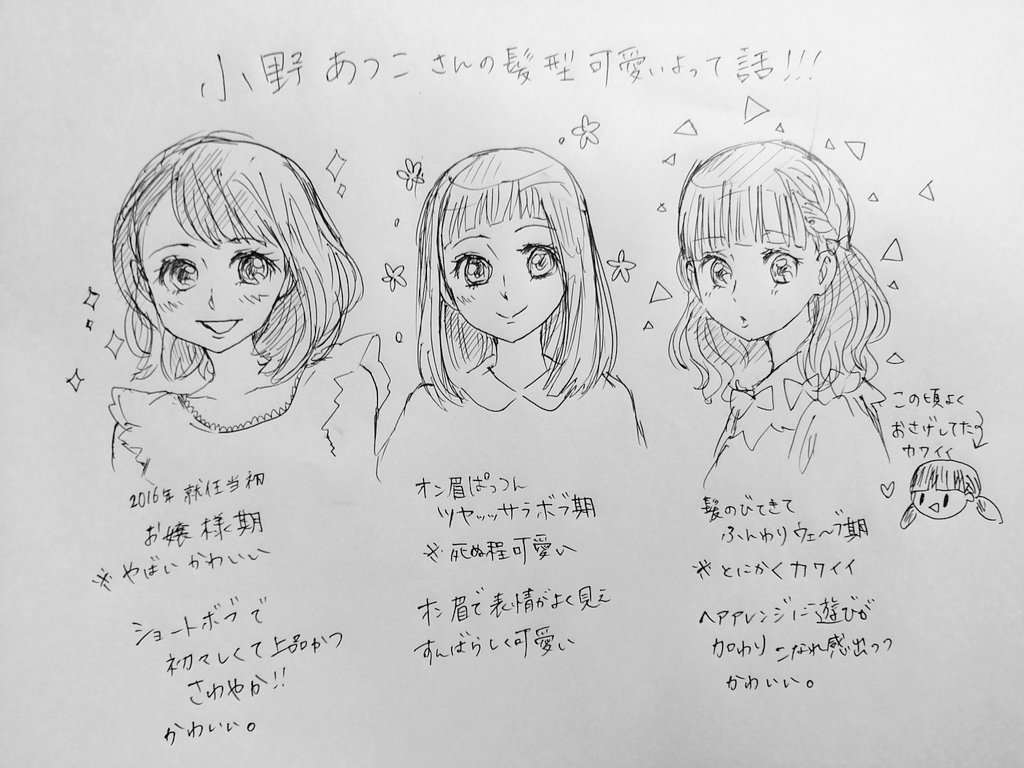 小野あつこさんの髪型可愛いよって話!!!
2016年就任当初
お嬢様期
※やばいかわいい
ショートボブで
初々しくて上品かつ
さわやか!!
かわいい。
オン眉ぱっつん
ツヤッッサラボブ期
※死ぬ程可愛い
オン眉で表情がよく見え
すんばらしく可愛い
髪のびてきて
ふんわりウェ〜ブ期
※とにかくカワイイ
ヘアアレンジに遊びが
加わりこなれ感出つつ
かわいい。
この頃よく
おさげしてた
カワイイ